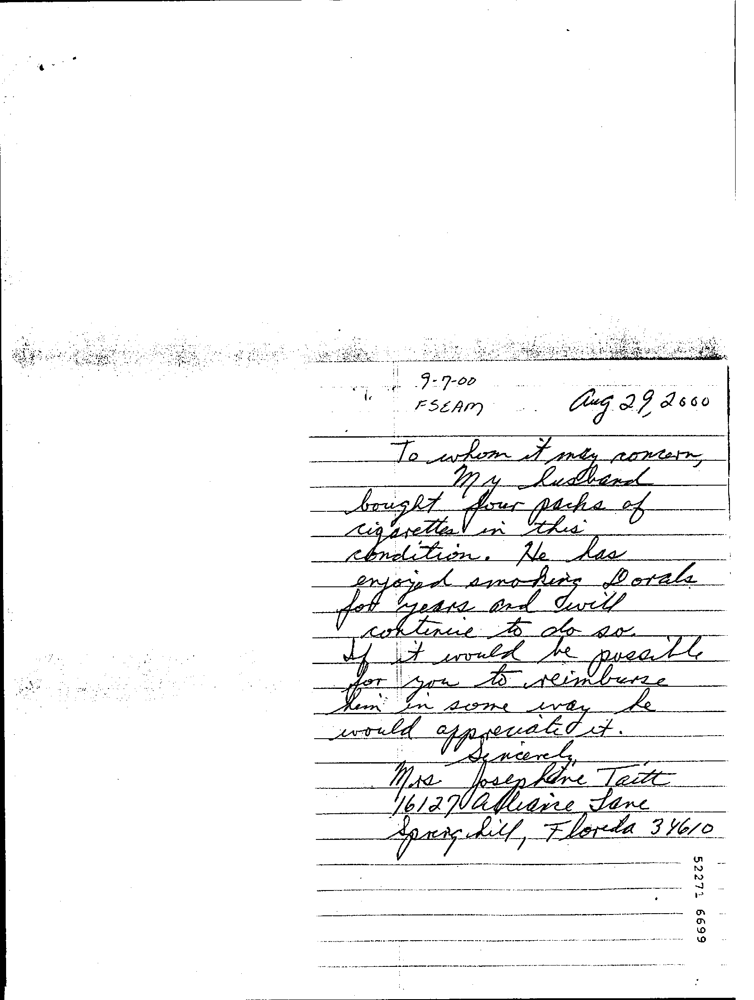 9-7-00
FSEAM
Aug 29, 2000
To whom it may concern,
My husband
bought four packs of
cigarettes in this
condition. He has
enjoyed smoking Dorals
for years and will
continue to do so.
If it would be possible
for you to reimburse
him in some way he
would appreciate it.
Sincerely,
Mrs Josephine Taitt
16127 Alliance Lane
Spring hill, Florida 34610
52271 6699